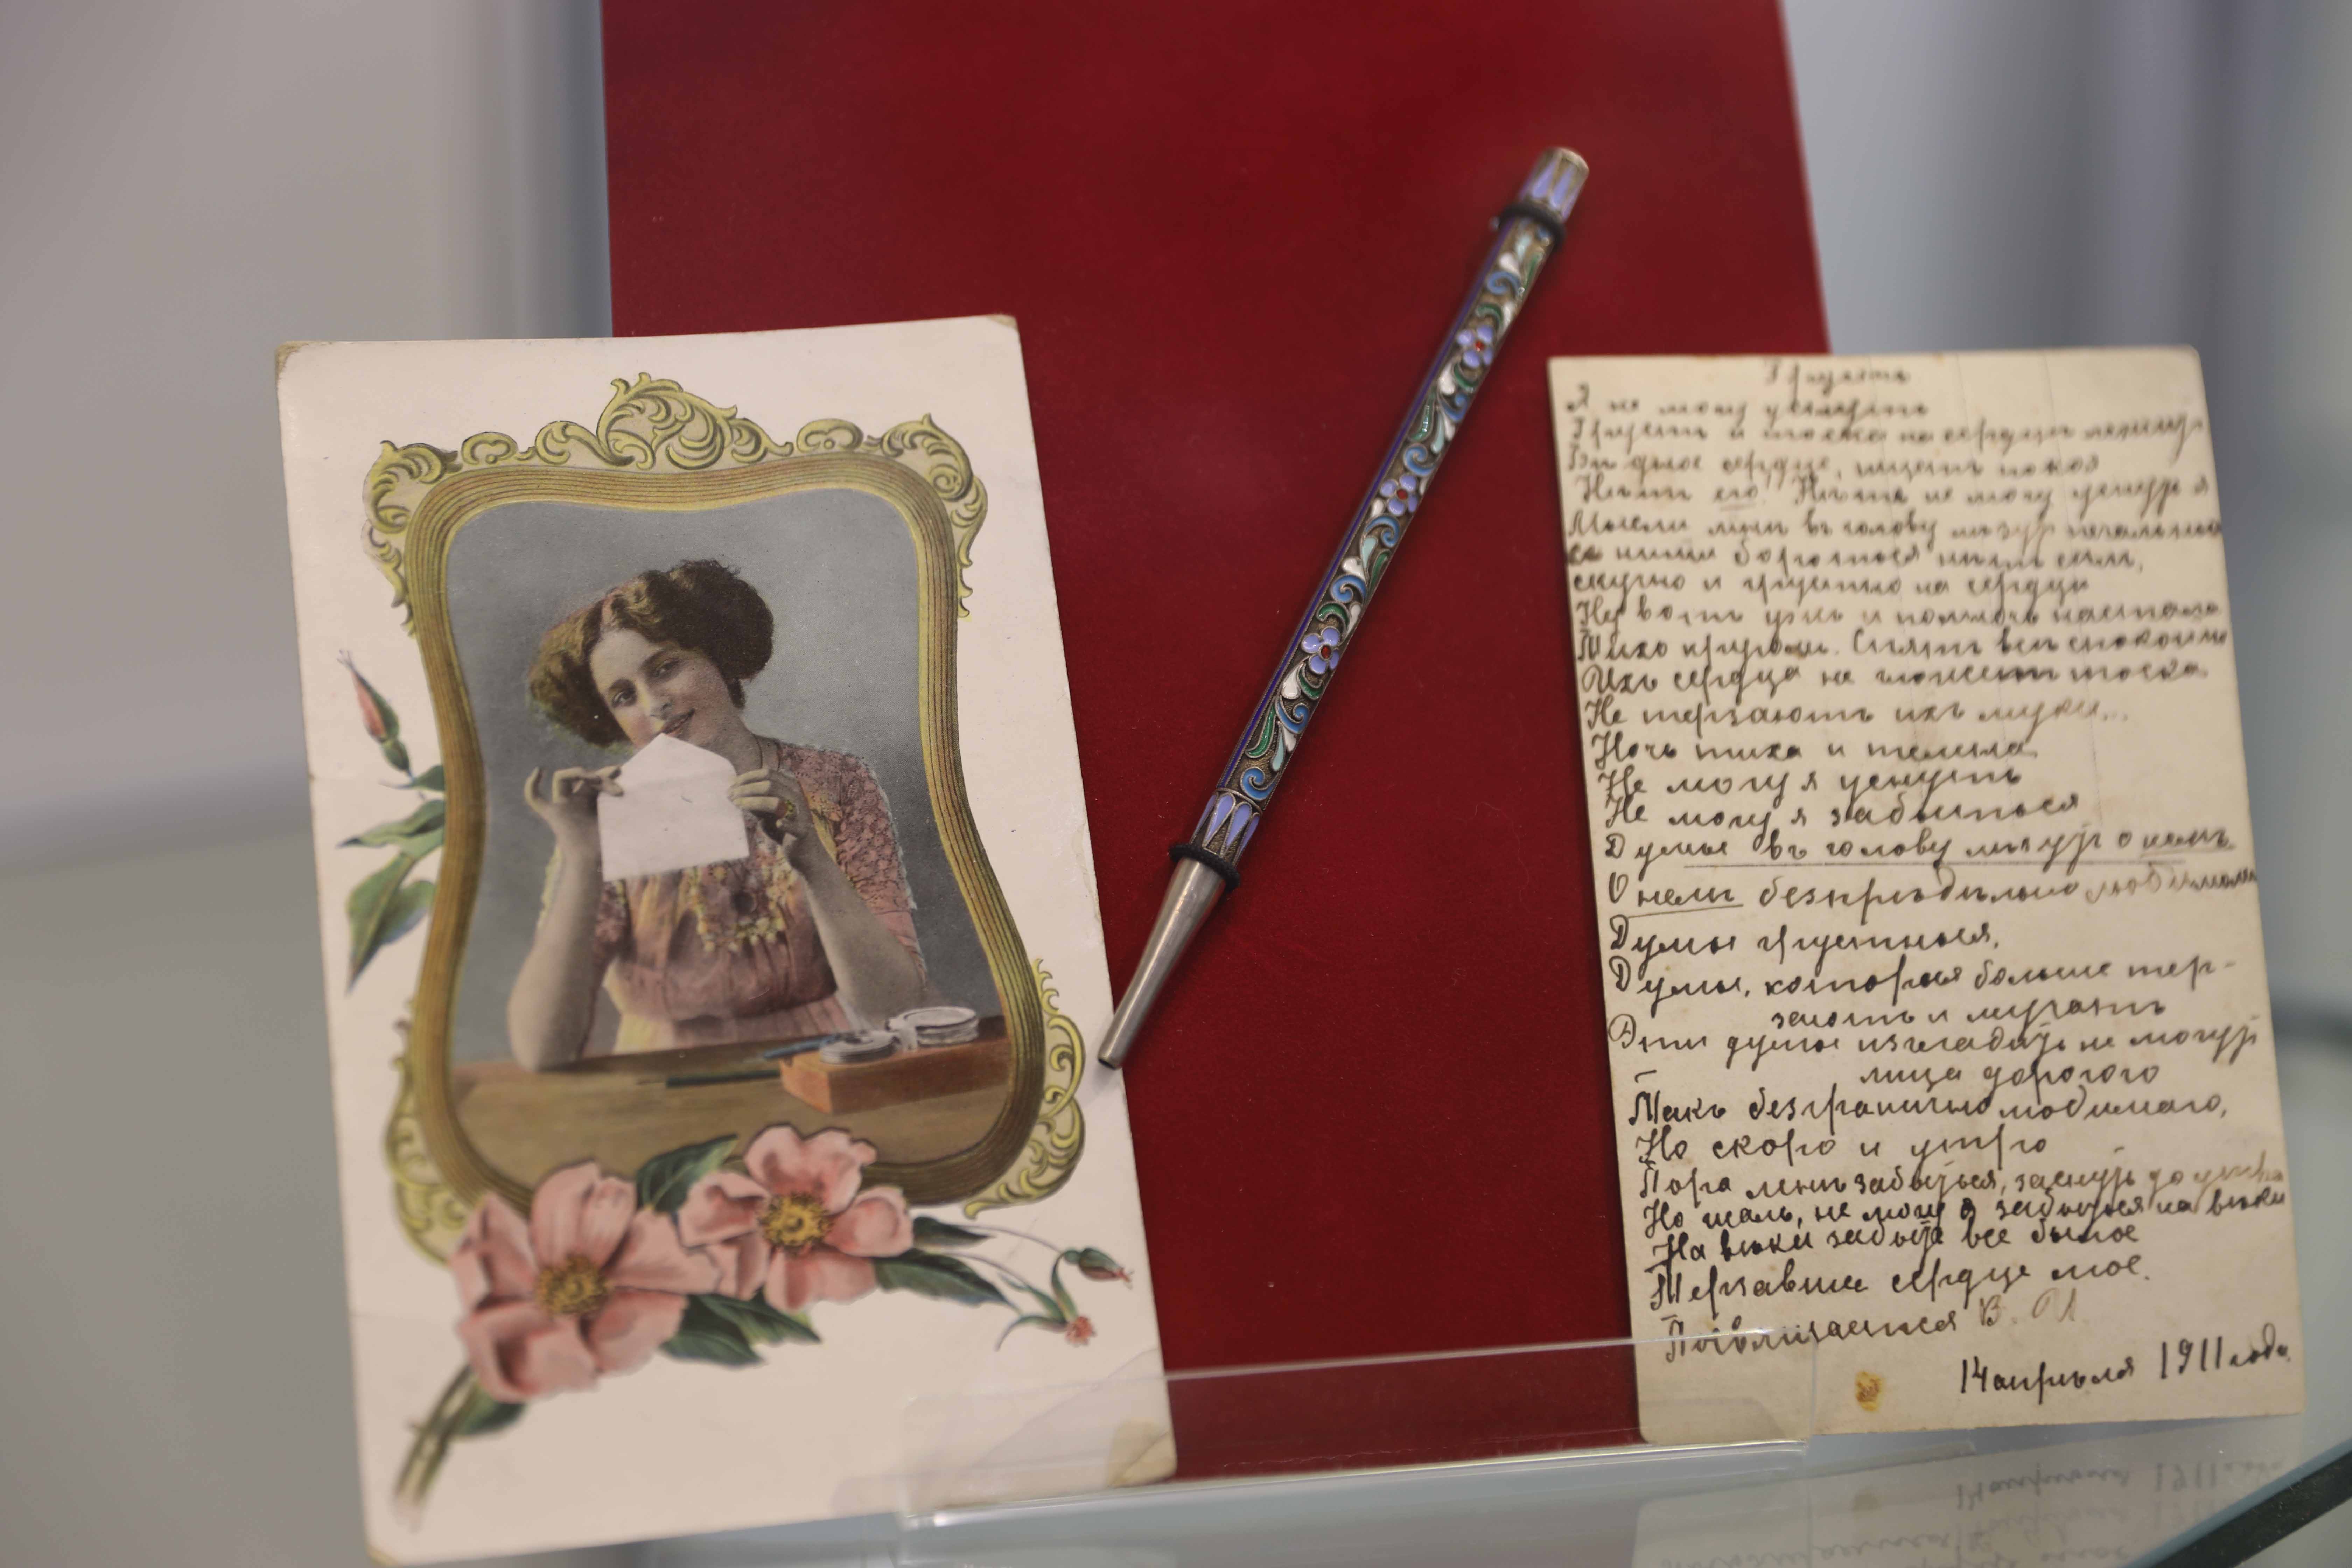 Грусть
Я не могу уснуть
Грусть и тоска на сердце лежит
Бѣдное сердце, ищетъ покоя
Нѣтъ его. Нѣтъ не могу уснуть я
Мысли мнѣ въ голову лезутъ печальныя
съ ними бороться нѣтъ силъ,
скучно и грустно на сердце
Ну вотъ ужъ и полночь настала
Тихо кругомъ. Спятъ всѣ спокойно
Ихъ сердца не гложетъ тоска
Не терзаютъ ихъ муки...
Ночь тиха и темна
Не могу я уснуть
Не могу я забыться
Думы въ голову лѣзут о немъ
О немъ безпредѣльно любимомъ
Думы грустныя,
Думы, которыя больше тер-
заютъ и мучаютъ
Эти думы изгладить не могут
лица дорогого
Такъ безгранично любимаго,
Но скоро и утро
Пора мнѣ забыться, заснуть до утра
Но жаль, не могу я забыться на вѣки
На вѣки забыть все былое
Терзавшее сердце мое.
Посвящается В.
14 апрѣля 1911 года.